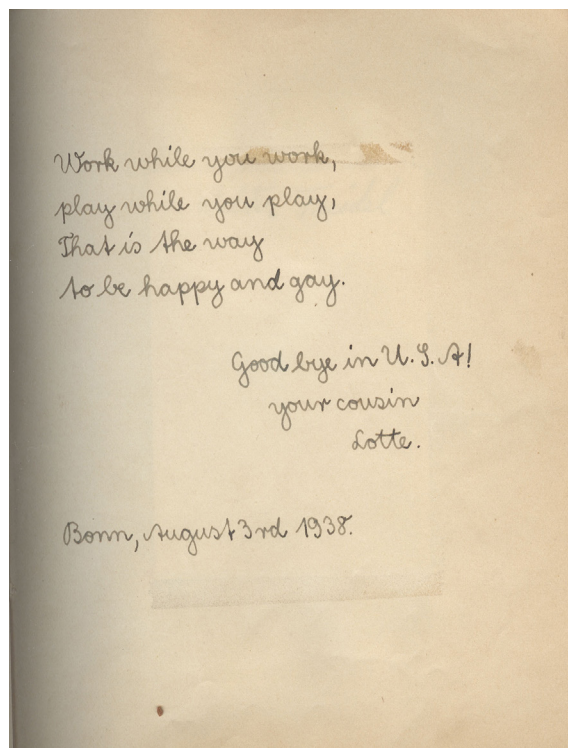 Work while you work,
play while you play,
That is the way
to be happy and gay.
Good bye in U.S.A!
your cousin
Lotte.
Bonn, August 3rd 1938.